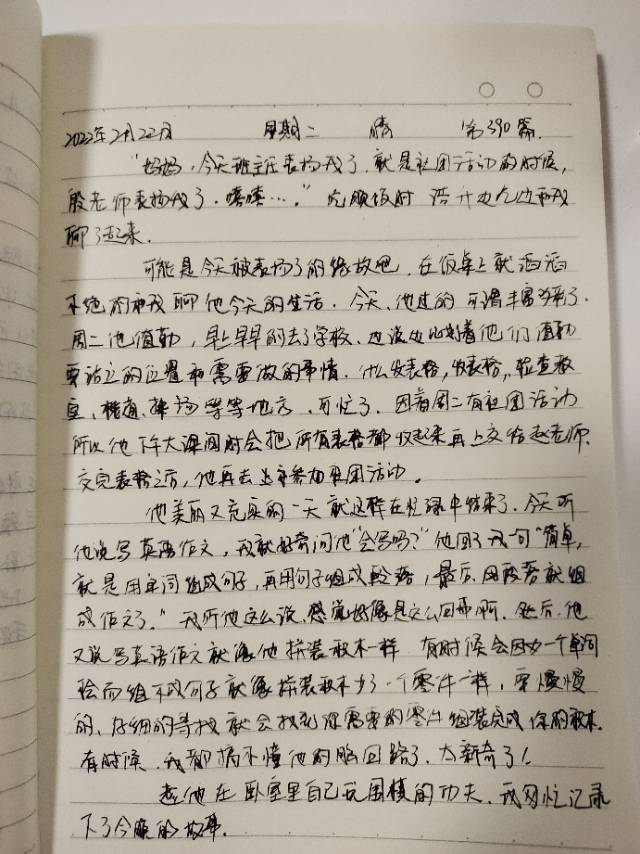 2022年2月22日 星期二 晴 第390篇.
"妈妈,今天班主任表扬我了.就是社团活动的时候,
殷老师表扬我了.嘻嘻…."吃晚饭时 边吃边和我
聊了起来.
可能是今天被表扬了的缘故吧.在饭桌上就滔滔
不绝的和我聊他今天的生活.今天,他过的可谓丰富多彩了.
周二他值勤,早上早早的去了学校.边说边比划着他们值勤
要站立的位置和需要做的事情.什么发表格,收表格,检查教
室、楼道、操场等等地方.可忙了.因着周二有社团活动
所以他下午大课间时会把所有表格都收起来再上交给赵老师.
交完表格之后,他再去参加社团活动。
他美丽又充实的一天就这样在忙碌中结束了.今天听
他说写英语作文,我就好奇问他"会写吗?"他回了我一句"简单,
就是用单词组成句子,再用句子组成段落,最后用段落就组
成作文了。"我听他这么说,感觉好像是这么回事啊.然后,他
又说写英语作文就像他拼装积木一样.有时候会因为一个单词
而组不成句子就像拼装积木少了一个零件一样,要慢慢
的、仔细的寻找就会找到你需要的零件组装完成你的积木.
有时候,我都搞不懂他的脑回路了.太新奇了!
趁他在卧室里自己玩围棋的功夫,我匆忙记录
下了今晚的故事.